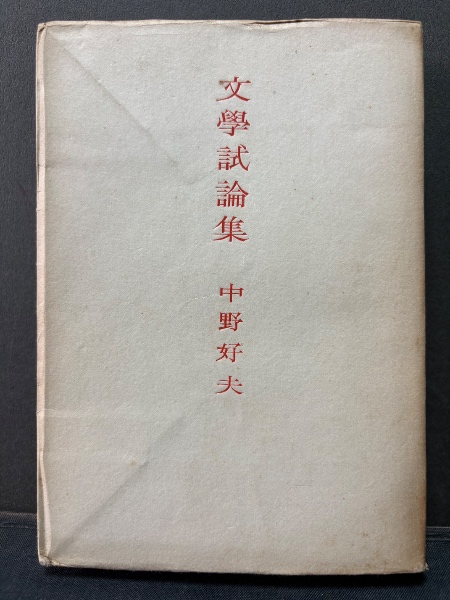 文學試論集
中野好夫